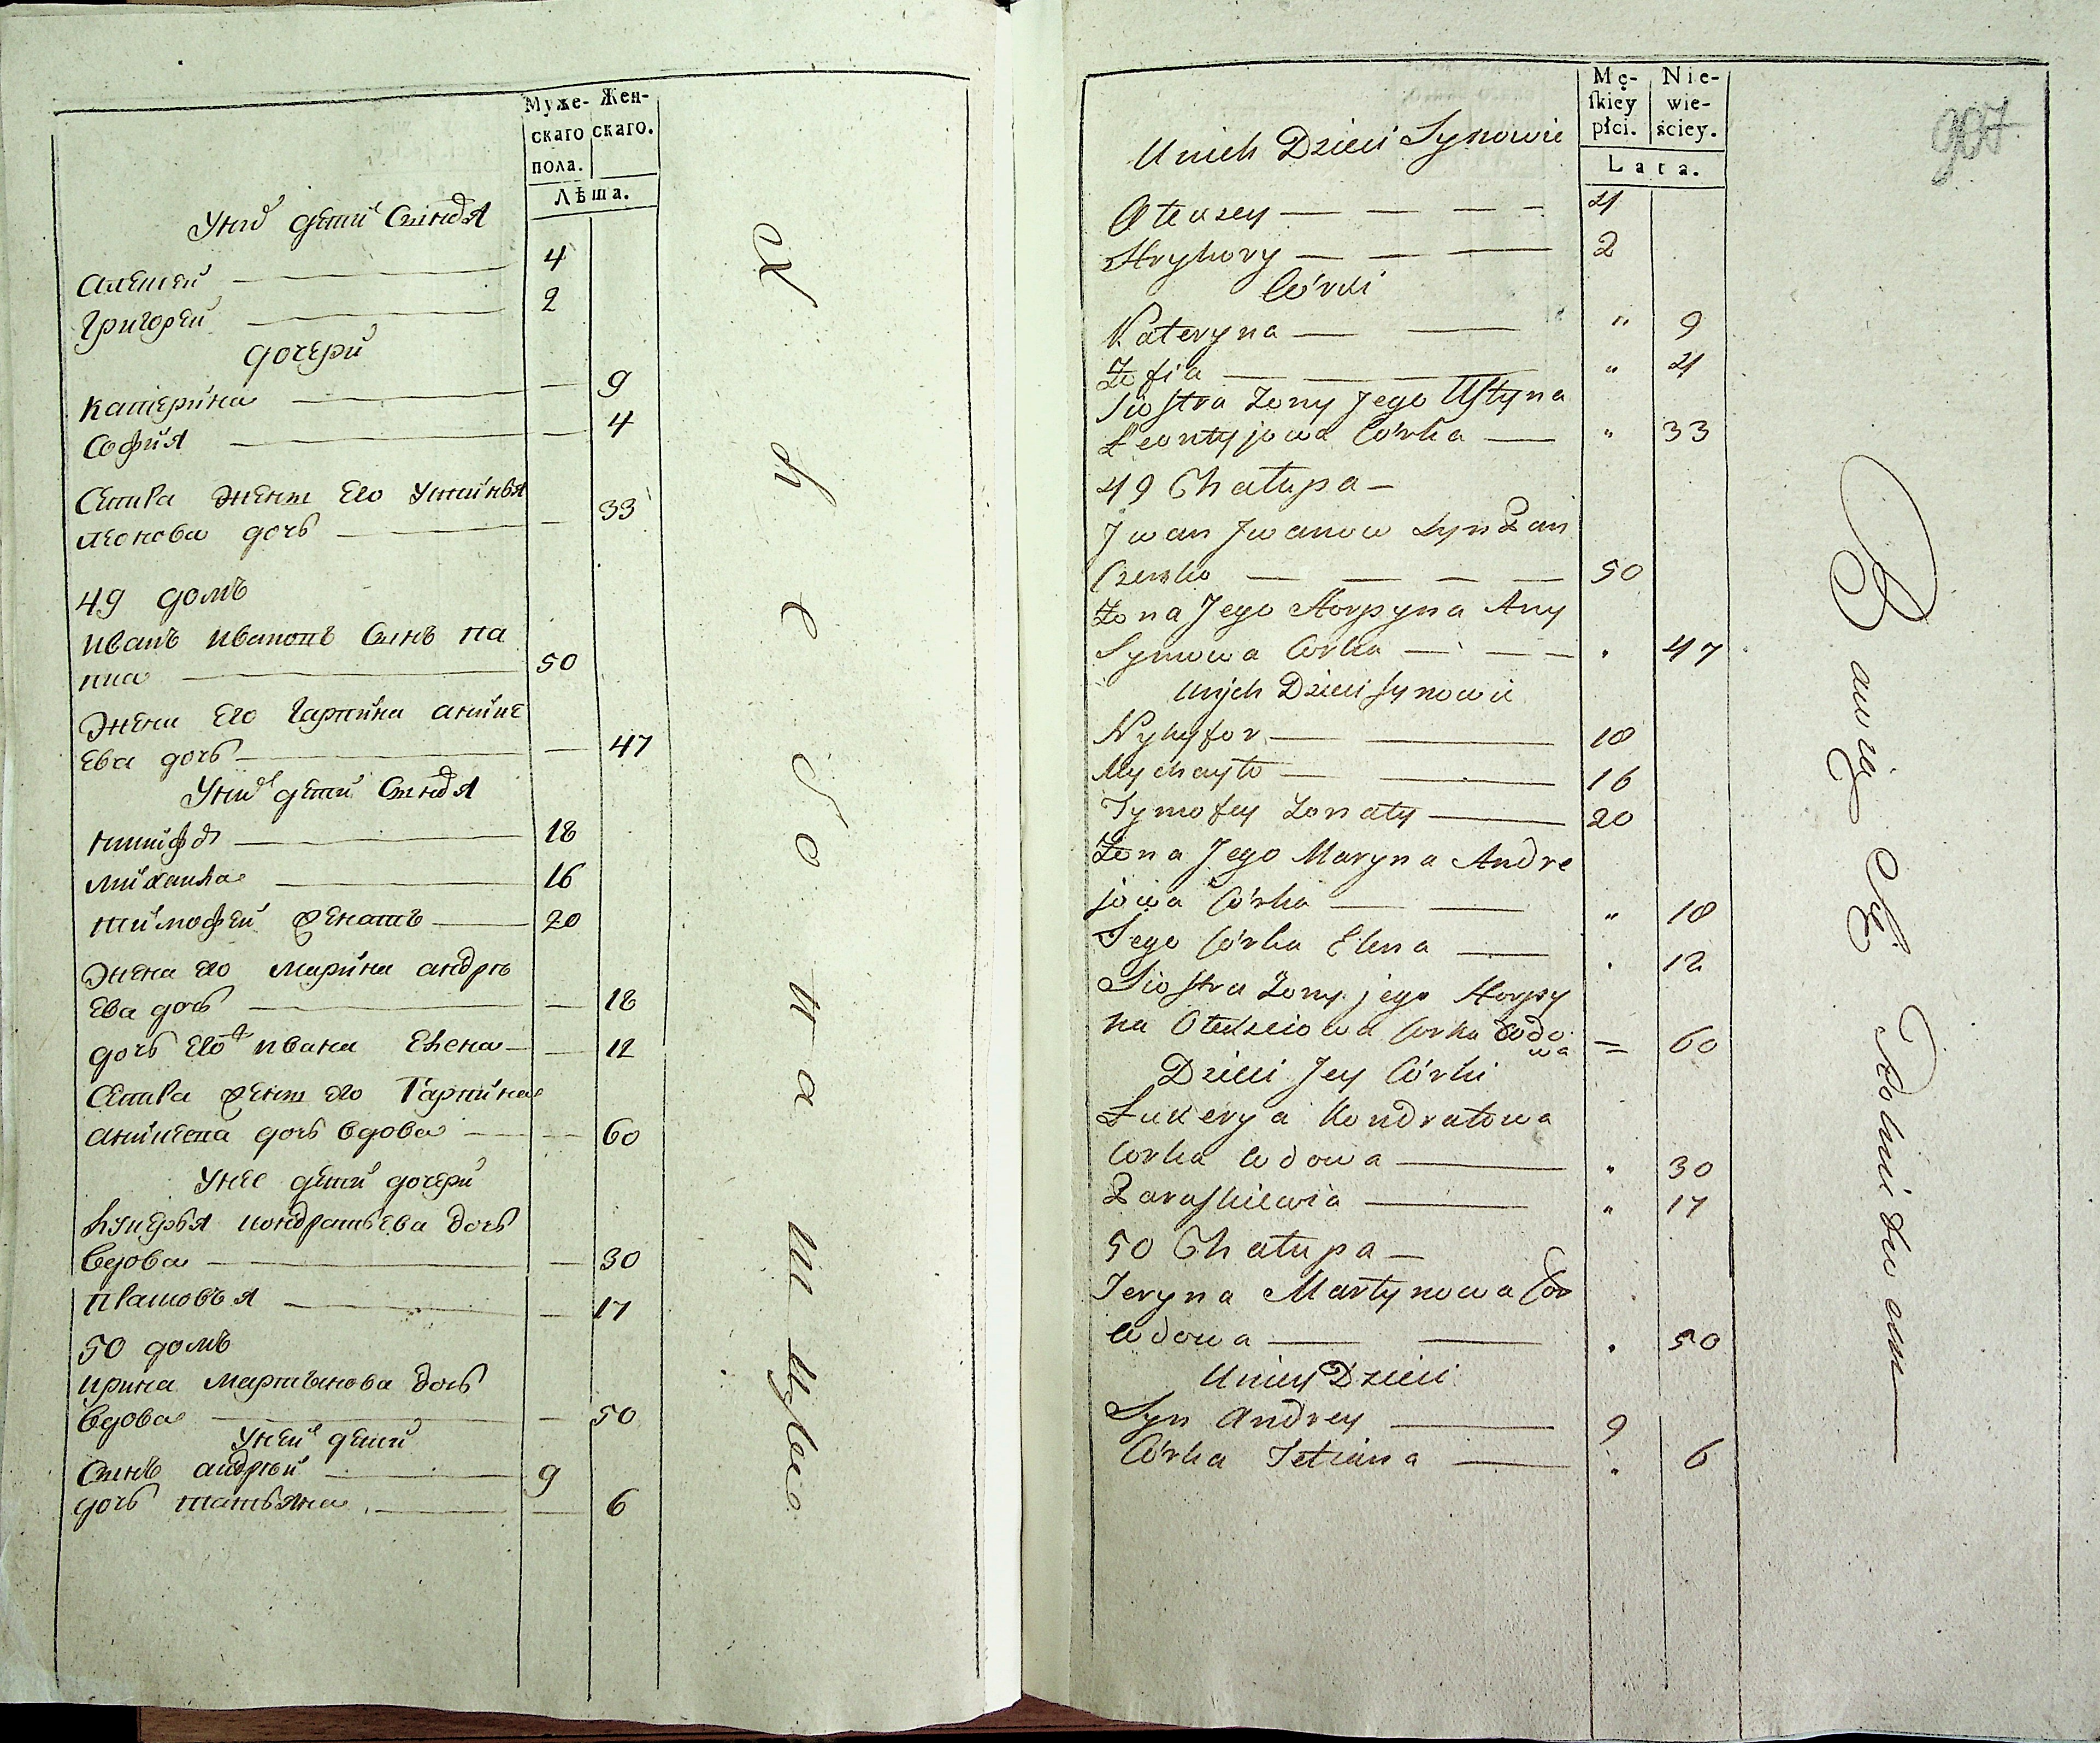 Муже- Жен-
скаго скаго.
пола.
Лѣта.
Унихъ дети Синовя
Алексей — 4
Григорей — 2
дочери
Катерина — — 9
София — — 4
Сестра жены Его Устинья
Леонова дочъ — — 33
49 домъ
Иванъ Ивановъ Синъ Па
— 50
Жена Его Гарпина Аниње
Ева дочъ — — 47
Унихъ дети Синовя
Никифоръ — 18
Михаила — 16
Тимофей женатъ — 20
Жена Его Марина Андрѣ
Ева дочъ — — 18
дочъ Его Ивана Елена — — 12
Сестра жены Его Гарпина
дочъ вдова — — 60
Унее дети дочери
Лукерья Кондратьева дочъ
Вдова — — 30
Парасковья — — 17
50 домъ
Ирина Мартынова дочъ
Вдова — — 50
Уней дети
Синъ Андрей — 9
дочъ татьяна — — 6
Mę- Nie-
ſkiey wie-
płci. ściey.
Lata.
907
Unich Dzieci Synowie
Olexsey — — — — 4
Hryhory — — — 2
Córki
Kateryna — — " 9
Zofia — — " 4
Siostra Zony Jego Ustyna
Leontyjowa Córka — " 33
49 Chałupa —
Iwan Iwanow Syn Pan
Czenko — — — — 50
Zona Jego Horpyna Any
Symowa Corka — — — " 47
Unich Dzieci Synowie
Nykyfor — — 18
Mychayło — — 16
Tymofey Zonaty — 20
Zona Jego Maryna Andre
jowa Córka — — " 18
Jego Córka Elena — " 12
Siostra Zony jego Horpy
na Corka Wdo
wa = 60
Dzieci Jey Córki
Łukerya Kondratowa
Corka Wdowa — " 30
Paraskiewia — " 17
50 Chałupa —
Jeryna Martynowa Cor
Wdowa — — " 50
Uniey Dzieci
Syn Andrey — 9
Córka Tetiana — " 6